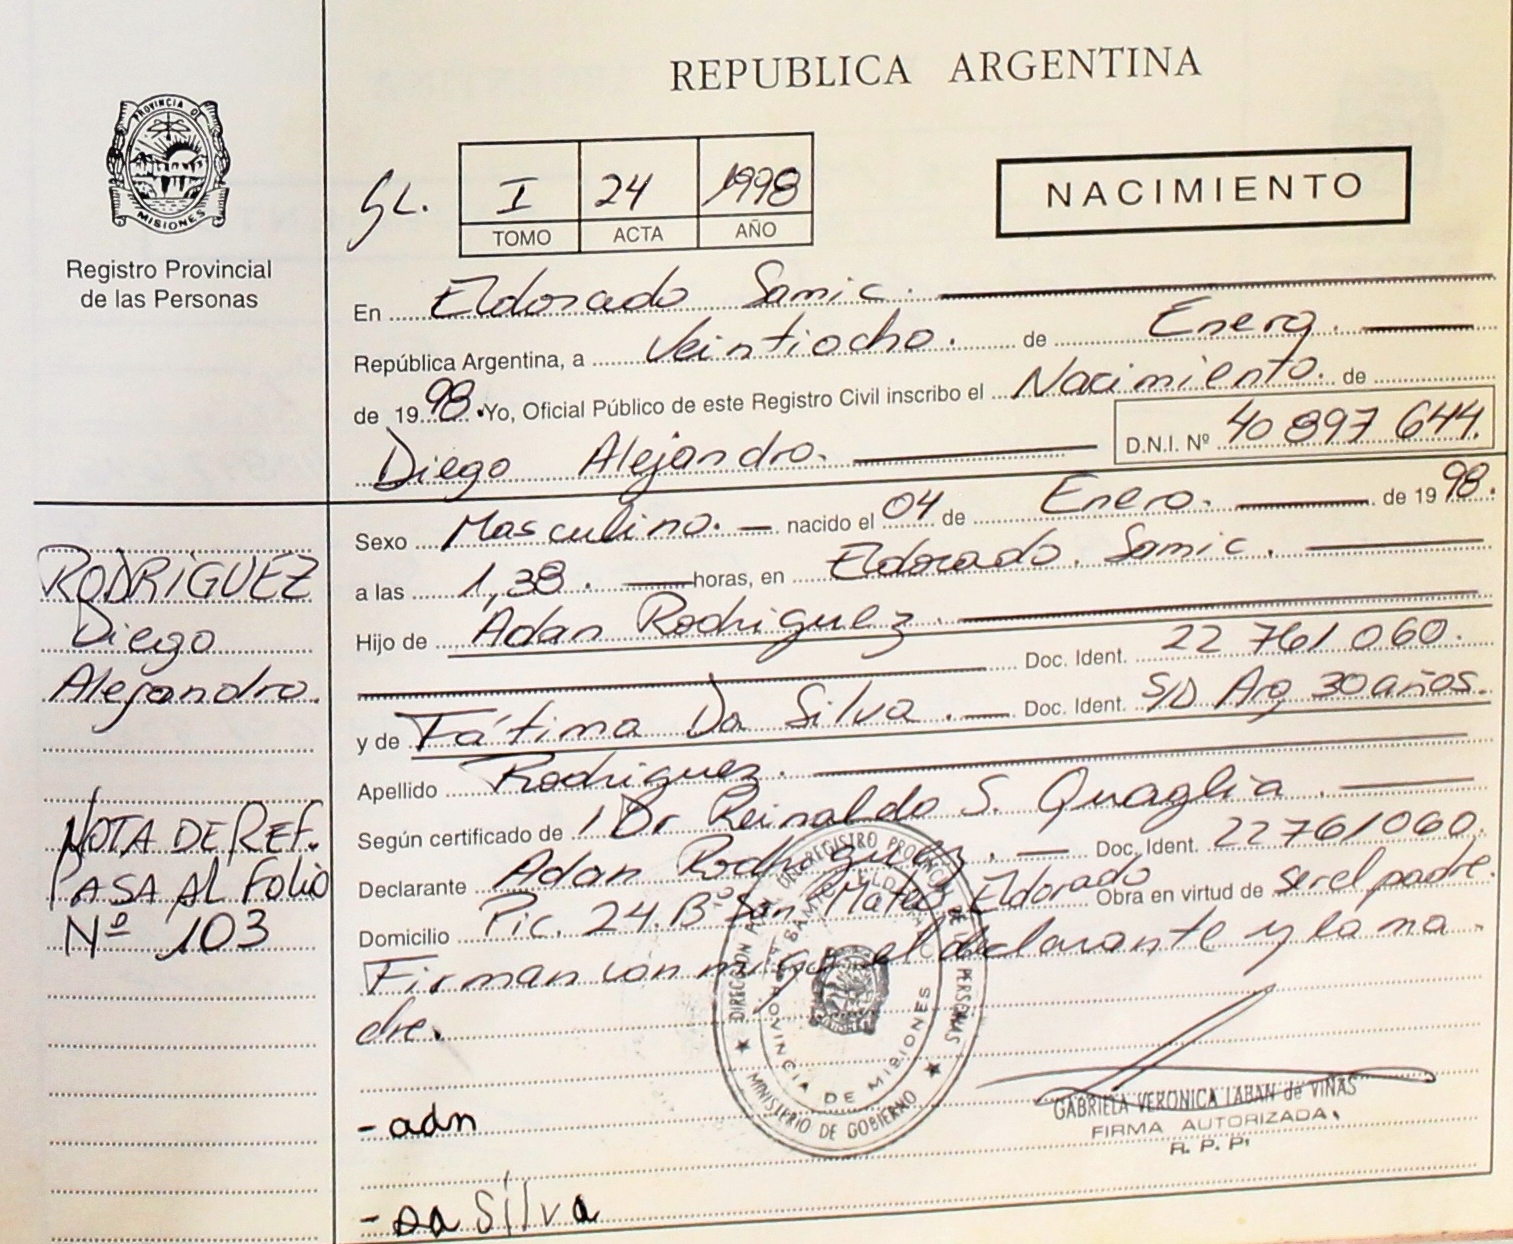 PROVINCIA DE
MISIONES
Registro Provincial
de las Personas
REPUBLICA ARGENTINA
GL. I 24 1998
TOMO ACTA AÑO
NACIMIENTO
En Eldorado Samic.
República Argentina, a Veintiocho. de Enero.
de 1998. Yo, Oficial Público de este Registro Civil inscribo el Nacimiento. de
Diego Alejandro. D.N.I. Nº 40 897 644.
Sexo Masculino. nacido el 04 de Enero. de 1998.
a las 1,38. horas, en Eldorado. Samic.
Hijo de Adan Rodriguez.
Doc. Ident. 22 761 060.
y de Fátima Da Silva. Doc. Ident. S/D Arg 30 años.
Apellido Rodriguez.
Según certificado de Dr Reinaldo S. Quaglia.
Declarante Adan Rodriguez. Doc. Ident. 22761060.
Domicilio Pic. 24. Bº San Mateo, Eldorado Obra en virtud de ser el padre.
Firman conmigo el declarante y la ma
dre.
- adn
- Da Silva
RODRIGUEZ
Diego
Alejandro.
NOTA DE REF.
PASA AL FOLIO
Nº 103
REGISTRO PROVINCIAL DE LAS PERSONAS
MINISTERIO DE GOBIERNO
PROVINCIA DE MISIONES
GABRIELA VERONICA LABAN de VIÑAS
FIRMA AUTORIZADA
R. P. P.